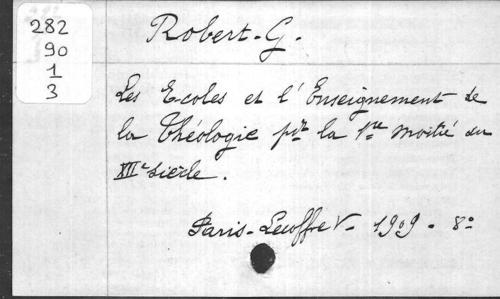 282
90
1
3
Robert. G.
Les Ecoles et l'Enseignement de
la Théologie pdt la 1re moitié du
XIIe siècle.
Paris - Lecoffre V - 1909. 8o